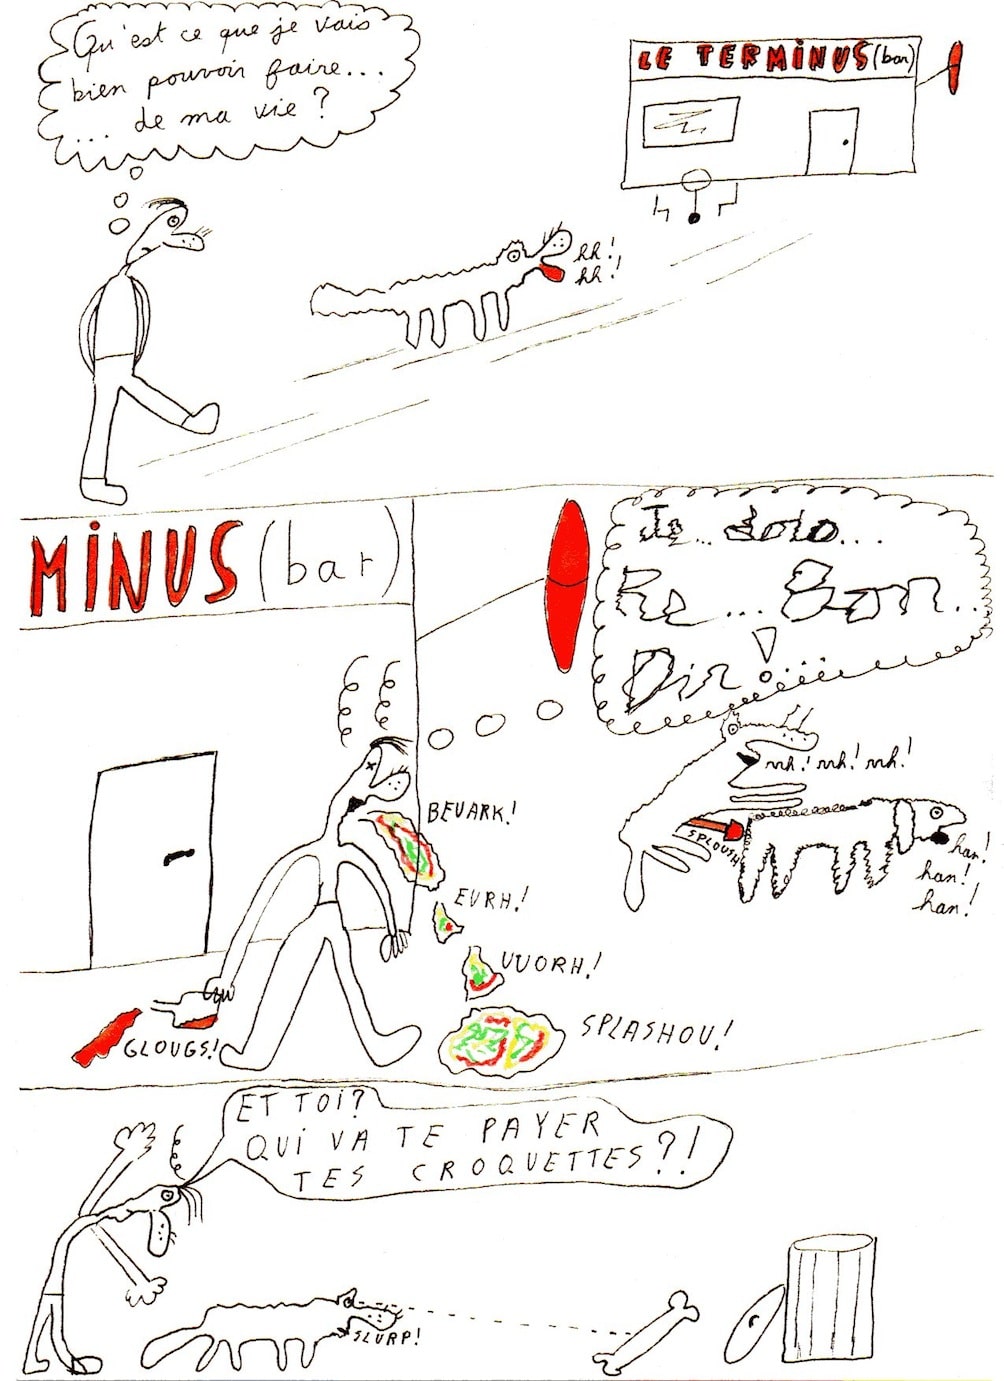 Qu'est ce que je vais
bien pouvoir faire...
... de ma vie ?
LE TERMINUS (bar)
hh !
hh !
MINUS (bar)
Je... dolo...
Re... Bon...
Dir !...
BEUARK !
EURH !
UUORH !
SPLASHOU !
GLOUGS !
mh ! mh ! mh !
SPLOUSH
han !
han !
han !
ET TOI ?
QUI VA TE PAYER
TES CROQUETTES ?!
SLURP !